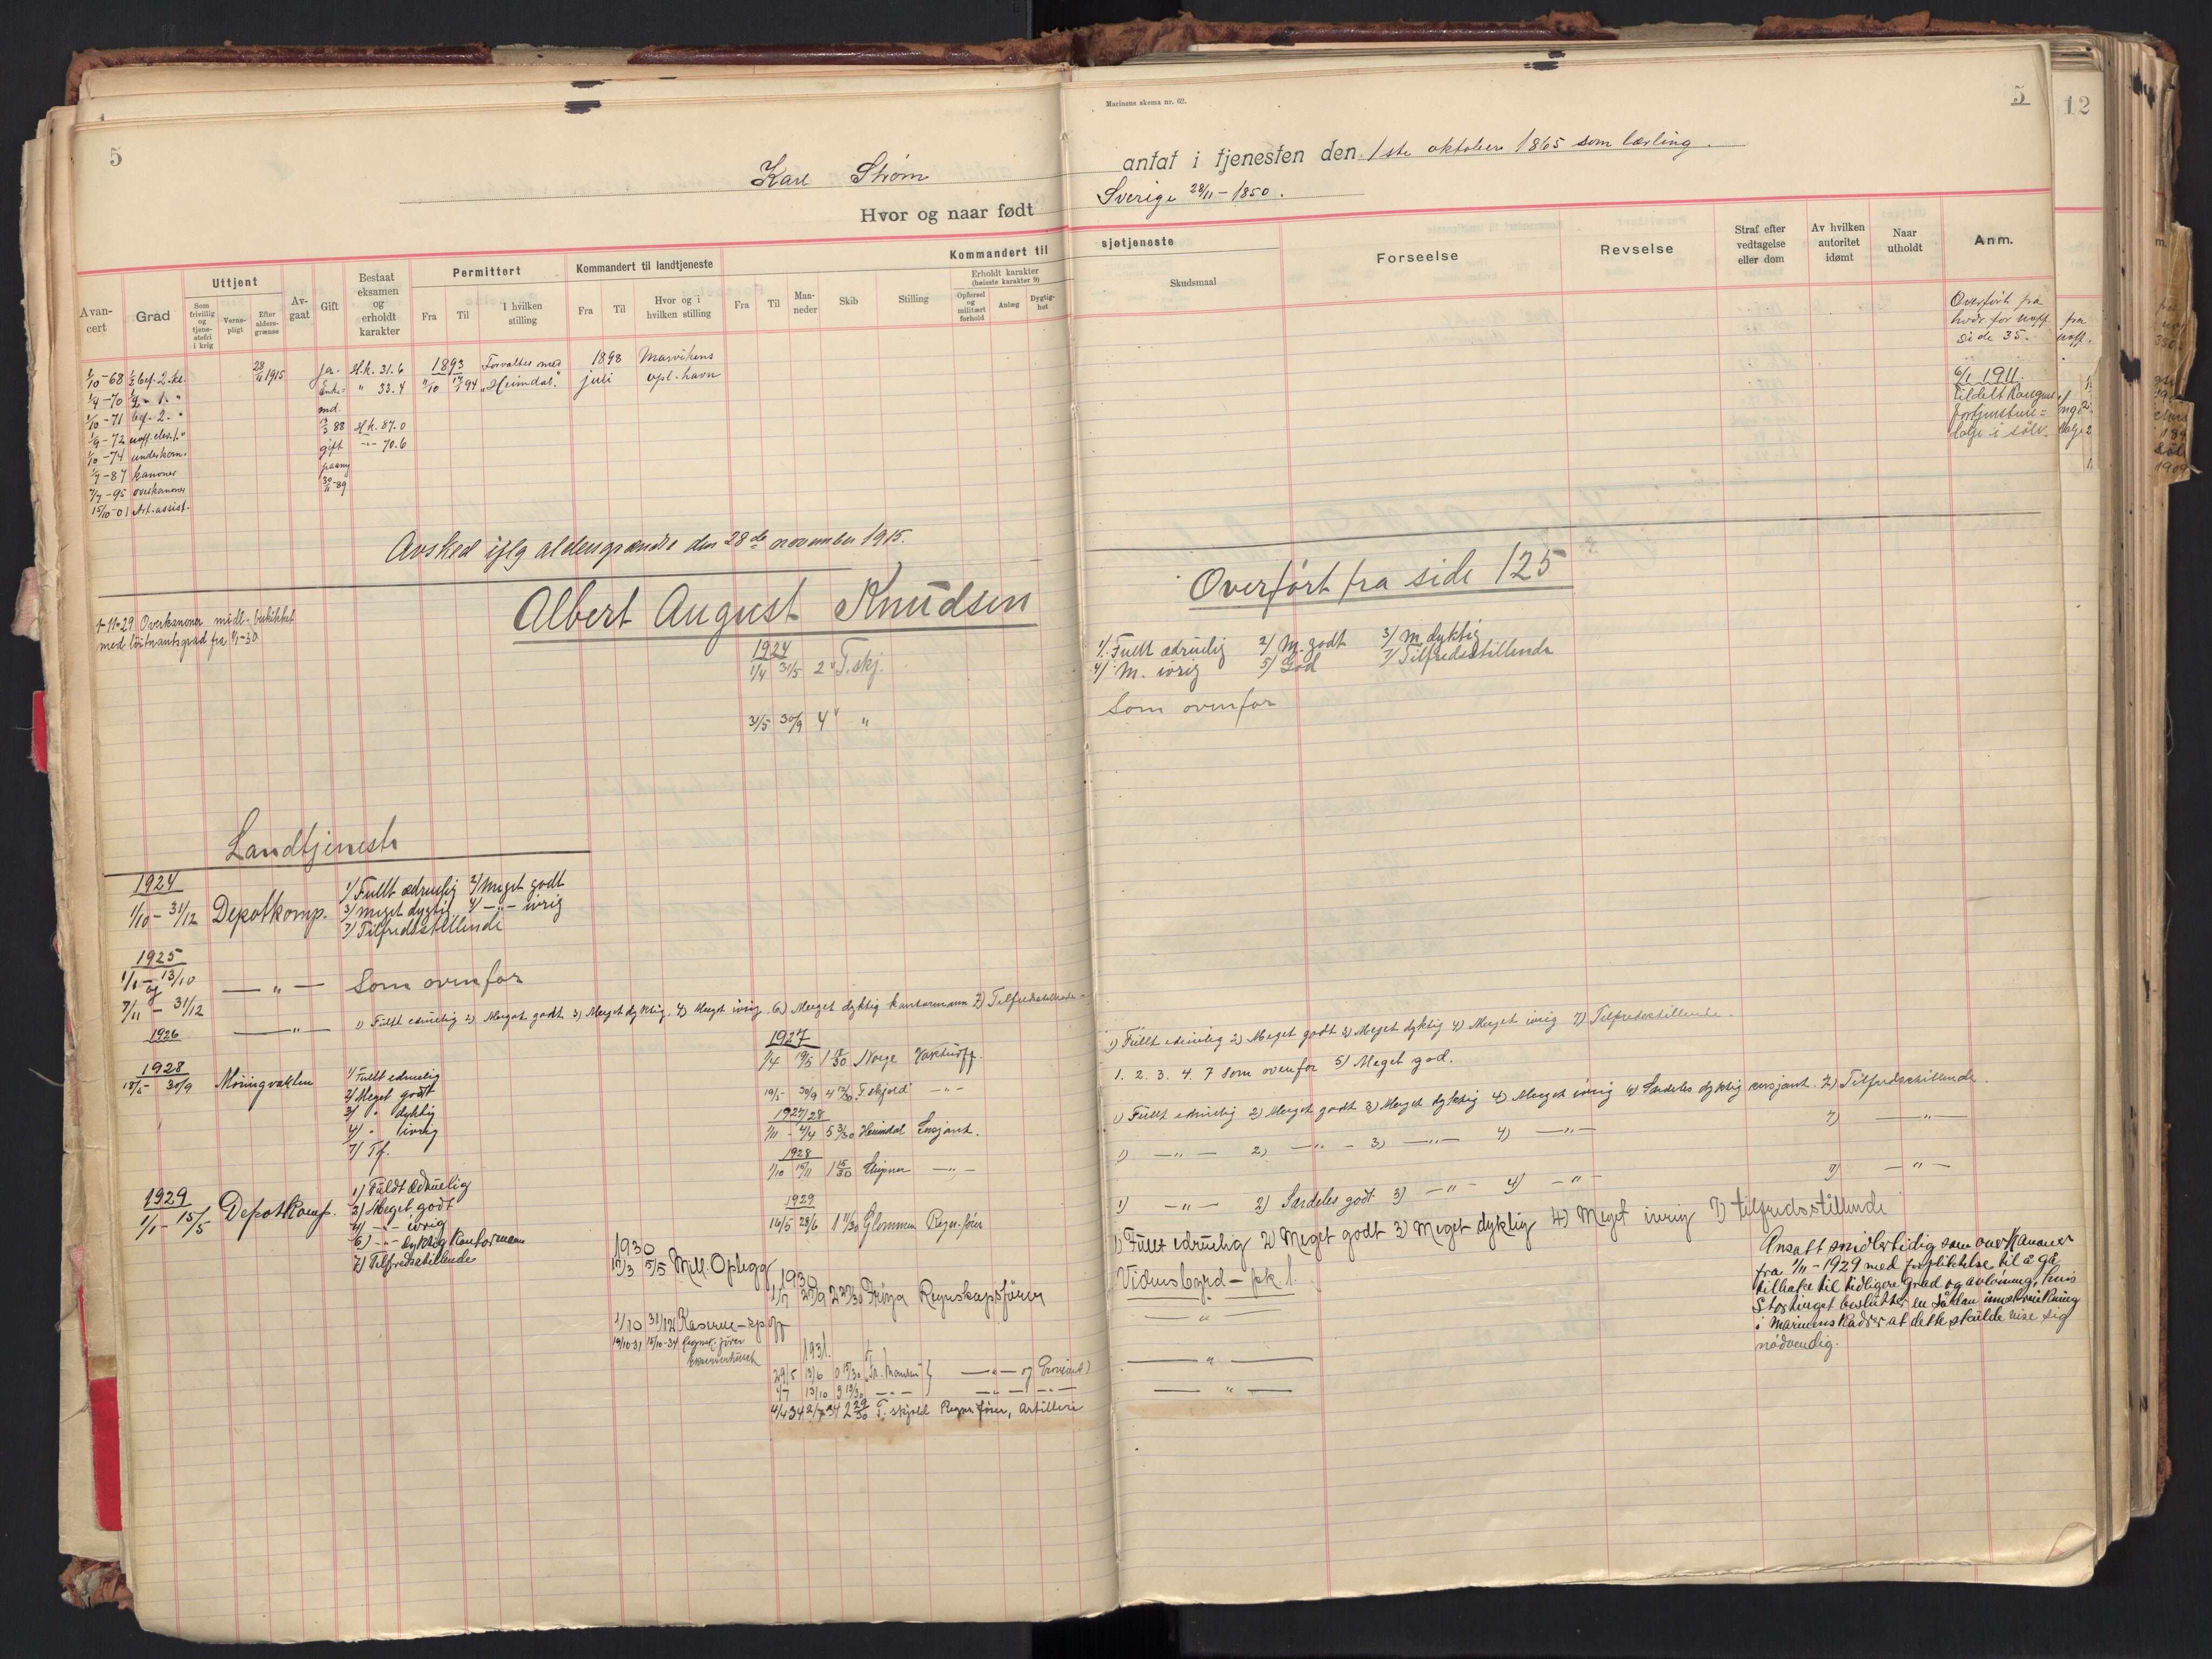 5
Karl Strøm
Hvor og naar født
Kommandert til
Avancert
Grad
Uttjent
Som frivillig og tjenestefri i krig
Vernepligt
Efter aldersgrænse
Avgaat
Gift
Bestaat eksamen og erholdt karakter
Permittert
Fra
Til
I hvilken stilling
Kommandert til landtjeneste
Fra
Til
Hvor og i hvilken stilling
Fra
Til
Maaneder
Skib
Stilling
Erholdt karakter (høieste karakter 9)
Opførsel og militært forhold
Anlæg
Dygtighet
1/10-68
1/9-70
1/10-71 bef. 2.
1/9-72 uoff. elev. 1.
1/10-74 underkan.
1/7-87 kanoner
1/7-95 overkanoner
15/10-01 Art. assist.
28/11 1915
ja.
Enkemd.
13/3 88
gift
paany
30/11-89
H.k. 31.6
" 33.4
H.k. 87.0
-"- 70.6
1893
Forvalter med
"Heimdal".
1898
juli
Marvikens
opl. havn
Avsked iflg aldersgrændse den 28de november 1915.
Albert August Knudsen
1-11-29 Overkanoner midl. beskikket
med løitnantsgrad fra 1/1-30
1924
1/4 31/5 2 " T.skj.
31/5 30/9 4 " "
Landtjeneste
1924
1/10 - 31/12 Depotkomp.
1/ Fullt ædruelig 2/ Meget godt
3/ meget dygtig 4/ -"- ivrig
7/ Tilfredsstillende
1925
1/1 - 13/10
og
7/11 - 31/12
— " — Som ovenfor
1926 — " — 1) Fullt edruelig 2) Meget godt 3) Meget dyktig, 4) Meget ivrig 6) Meget dyktig kontormann 7) Tilfredsstillende
1928
18/5- 30/9 Møringvakten
1/ Fullt edruelig
2/ Meget godt
3/ " dyktig
4/ " ivrig
7/ Tf.
1929
1/1 - 15/5 Depotkomp.
1) Fuldt Ædruelig
2) Meget godt
4) -"- ivrig
6) -"- dyktig Kontormann
7) Tilfredsstillende
1927
1/4 19/5 1 19/30 Norge Vaktuoff.
19/5- 30/9 4 12/30 T. skjold -"-
1927/28
1/11 - 4/4 5 3/30 Heimdal Sersjant.
1928
1/10 15/11 1 15/30 Sleipner -"-
1929
16/5 28/6 1 11/30 Glommen Regn. fører
1930
17/3 5/5 Mll. Oplegg
1930
1/7 27/9 2 27/30 Frøya Regnskapsfører
1/10 31/12 Kaserne-
19/10-31 15/10-34 Regnsk. fører
1931.
29/5 13/6 0 15/30 -"- og Proviant)
4/7 13/10 3 -"- -"-
4/4 34 2/7 34 2 29/30 T. skjold Regns fører, Artilleri
Marinens skema nr. 62.
5
antat i tjenesten den 1ste oktober 1865 som lærling.
Sverige 28/11-1850.
sjøtjeneste
Skudsmaal
Forseelse
Revselse
Straf efter vedtagelse eller dom
Av hvilken autoritet idømt
Naar utholdt
Anm.
Overført fra
hvdr. for uoff.
side 35.
6/1 1911.
tildelt Kongens
fortjenstme=
dalje i sølv.
Overført fra side 125
1/. Fullt ædruelig 2/ M. godt 3/ M. dyktig
4/ M. ivrig 5/ God 7/ Tilfredsstillende
Som ovenfor
1) Fullt edruelig 2) Meget godt 3) Meget dyktig 4) Meget ivrig 7) Tilfredsstillende.
1. 2. 3. 4. 7 som ovenfor 5) Meget god.
1) Fullt edruelig 2) Meget godt 3) Meget dyktig 4) Meget ivrig 6) Særdeles dyktig sersjant. 7) Tilfredsstillende.
1) — " — 2) — " — 3) — " — 4) — " — 7) — " —
1) — " — 2) Særdeles godt 3) — " — 4) — " — 7) — " —
1) Fullt edruelig 2) Meget godt 3) Meget dyktig 4) Meget ivrig 7) tilfredsstillende
Vidnesbyrd - pk. 1.
— " —
— " —
— " —
Ansatt midlertidig som overkanoner
fra 1/11-1929 med forpliktelse til å gå
tilbake til tidligere grad og avlønning, hvis
Stortinget beslutter en sådan innskrenkning
i Marinens kadrer at dette skulde vise sig
nødvendig.
12